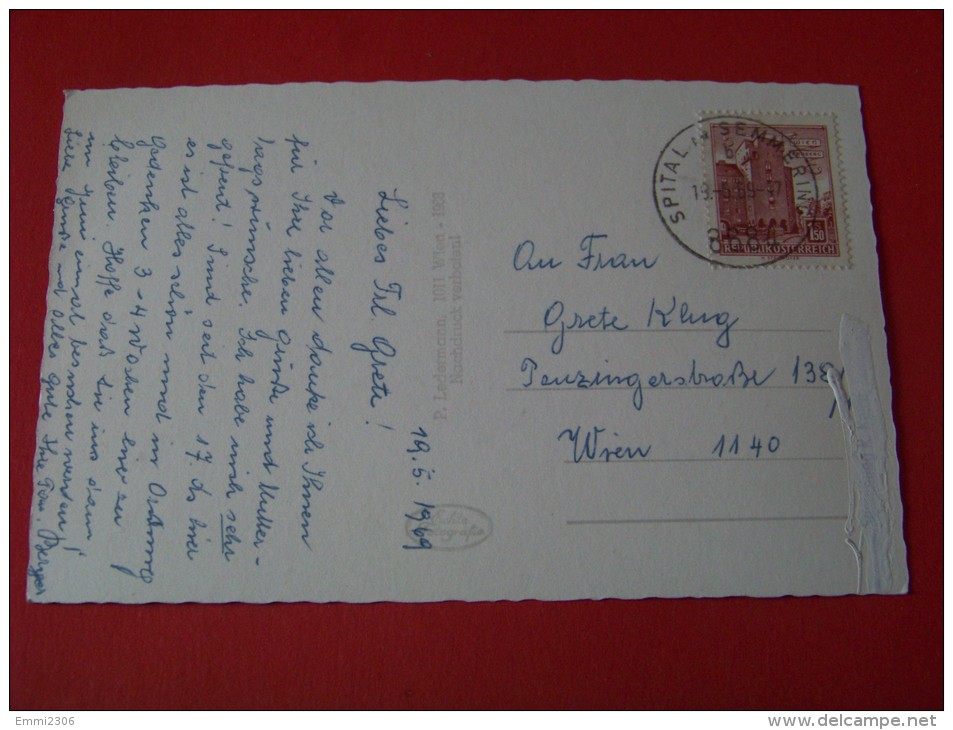 19.5.1969
Liebes Frl. Grete!
Vor allem danke ich Ihnen
für Ihre lieben Grüße und Mutter-
tagswünsche. Ich habe mich sehr
gefreut! Sind seit den 17. ds hier
es ist alles schön und in Ordnung
Gedenken 3-4 Wochen hier zu
bleiben. Hoffe daß Sie uns dann
im Juni einmal besuchen werden!
Liebe Grüße und alles Gute Ihre Fam. Berger
P. Ledermann, 1011 Wien - 1969
Nachdruck verboten!
SPITAL SEMMERING
19.-5.69-17
8684
1.50
REPUBLIK ÖSTERREICH
An Frau
Grete Klug
Penzingerstraße 138
Wien 1140
Emmi2306
www.delcampe.net